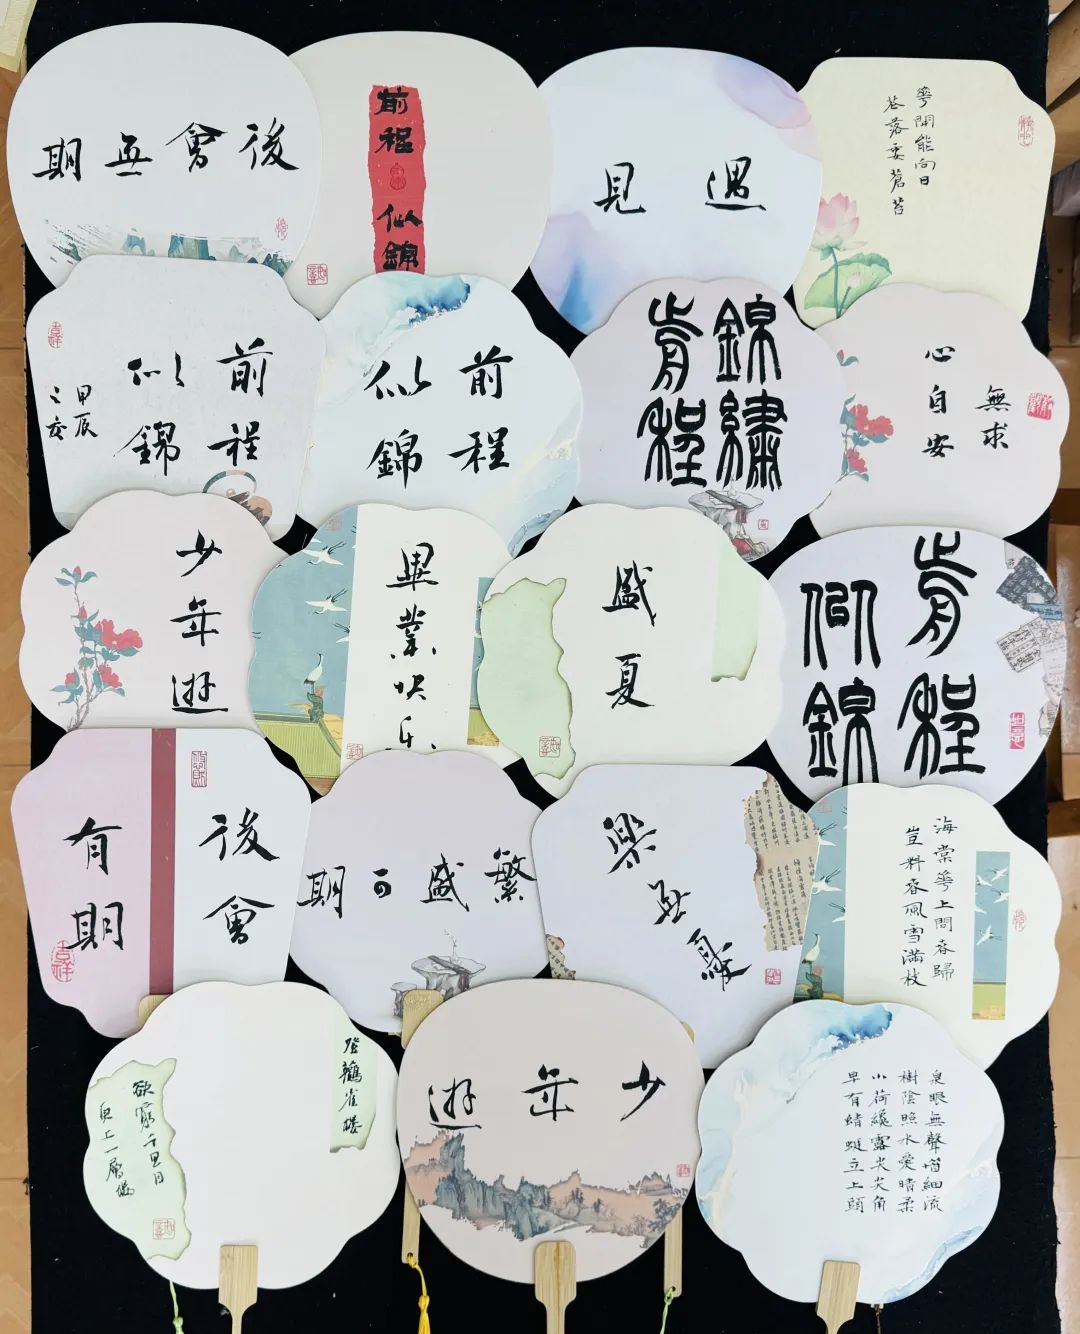 後會無期
前程
似錦
遇見
花開能向日
花落委蒼苔
前程
似錦
甲辰
之夏
前程
似錦
錦繡
前程
無求
心自安
少年遊
畢業快樂
盛夏
前程
似錦
後會
有期
繁盛可期
樂無憂
海棠花上問春歸
豈料春風雪滿枝
登鸛雀樓
欲窮千里目
更上一層樓
少年遊
泉眼無聲惜細流
樹陰照水愛晴柔
小荷纔露尖尖角
早有蜻蜓立上頭
吉祥
吉祥